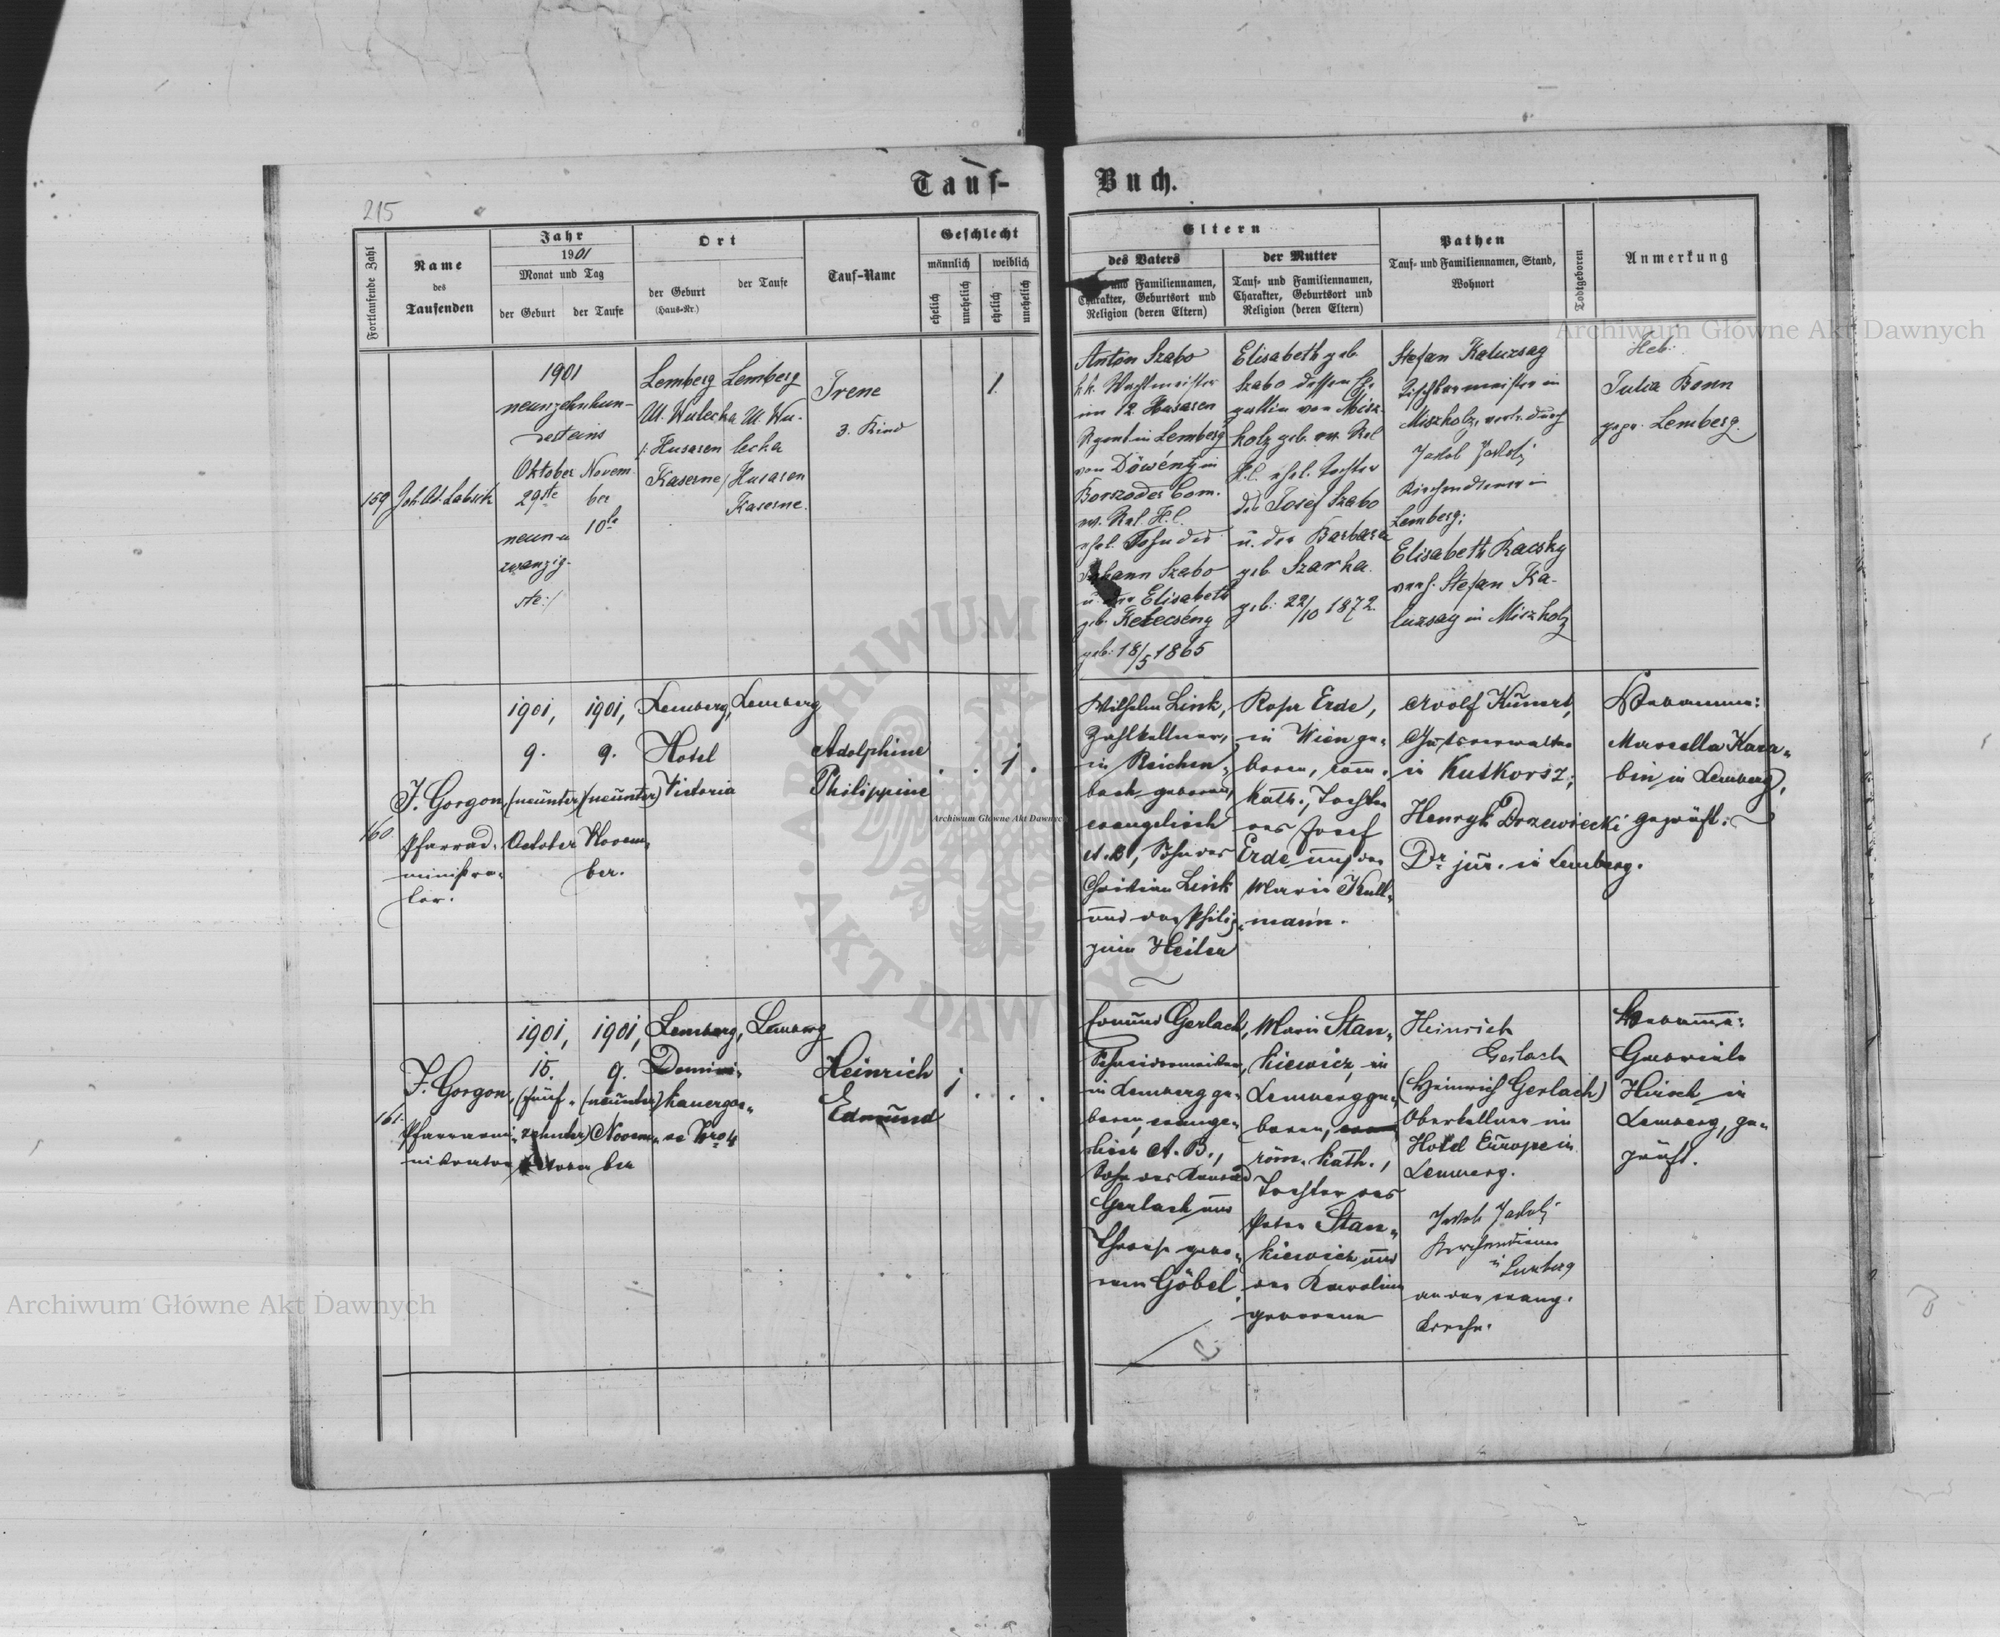 Tauf-
Buch.
215
Fortlaufende Zahl
Name
des
Taufenden
Jahr
1901
Monat und Tag
der Geburt
der Taufe
Ort
der Geburt
(Haus-Nr.)
der Taufe
Tauf-Name
Geschlecht
männlich
weiblich
ehelich
unehelich
ehelich
unehelich
Eltern
des Vaters
und Familiennamen,
Charakter, Geburtsort und
Religion (deren Eltern)
der Mutter
Tauf- und Familiennamen,
Charakter, Geburtsort und
Religion (deren Eltern)
Pathen
Tauf- und Familiennamen, Stand,
Wohnort
Todtgeboren
Anmerkung
159
Joh. Ad. Labsik
1901
neunzehnhun-
derteins
Oktober
29ste
neun u
zwanzig-
ste:/
Novem-
ber
10te
Lemberg
Ul. Wulecha
/: Husaren
Kaserne /
Lemberg
Ul. Wu-
lecha
Husaren
Kaserne.
Irene
3. Kind
1
Anton Szabo
k.k. Wachtmeister
im 12 Husaren
Rgmt in Lemberg
von Döwény in
Borszoder Com.
ev. Rel. H.C.
ehel. Sohn des
Johann Szabo
u. der Elisabeth
geb. Kelecsény
geb: 18/5 1865
Elisabeth geb.
Szabo dessen Ehe-
gattin von Misz-
holz geb. ev. Rel
H.C. ehel. Tochter
des Josef Szabo
u. der Barbara
geb. Szarka.
geb: 22/10 1872.
Stefan Kaluzsag
Tischlermeister in
Miszholz, vertr. durch
Jakob
Kirchendiener in
Lemberg;
Elisabeth Racsky
verh. Stefan Ka-
luzsag in Miszholz
Heb:
Julia Bonn
gepr. Lemberg.
160
J. Gorgon,
Pfarrad-
ministra-
tor.
1901,
9.
(neunter)
October
1901,
9.
(neunter)
Novem-
ber.
Lemberg,
Hotel
Victoria
Lemberg
Adolphine
Philippine
. . 1 .
Wilhelm Link,
Zahlkellner,
in Reichen-
bach geboren,
evangelisch
A.B., Sohn des
Christian Link
und der Philip-
pine Heiler
Rosa Erde,
in Wien ge-
boren, röm.
kath., Tochter
des Josef
Erde und der
Maria Kull-
mann.
Adolf Kunert,
Gutsverwalter
in Kutkorsz;
Henryk Drzewiecki
Dr jur. in Lemberg.
Hebamme:
Marcella Kara-
bin in Lemberg,
geprüft.
161.
J. Gorgon,
Pfarradmi-
nistrator
1901,
15.
(fünf-
zehnter)
October
1901,
9.
(neunter)
Novem-
ber
Lemberg,
Domini-
kanergas-
se Nro 4
Lemberg
Heinrich
Edmund
1 . . .
Edmund Gerlach,
Schneidermeister,
in Lemberg ge-
boren, evange-
lisch A.B.,
Sohn des Konrad
Gerlach und
Therese gebo-
renen Göbel.
Maria Stan-
kiewicz, in
Lemberg ge-
boren,
röm. kath.,
Tochter des
Peter Stan-
kiewicz und
der Karolina
geborenen
Heinrich
Gerlach
(Heinrich Gerlach)
Oberkellner im
Hotel Europe in
Lemberg.
Jakob
Kirchendiener
in Lemberg
an der evang.
Kirche.
Hebamme:
Gabriele
Hirsch in
Lemberg, ge-
prüft.
Archiwum Główne Akt Dawnych
Archiwum Główne Akt Dawnych
Archiwum Główne Akt Dawnych
ARCHIWUM GŁÓWNE AKT DAWNYCH